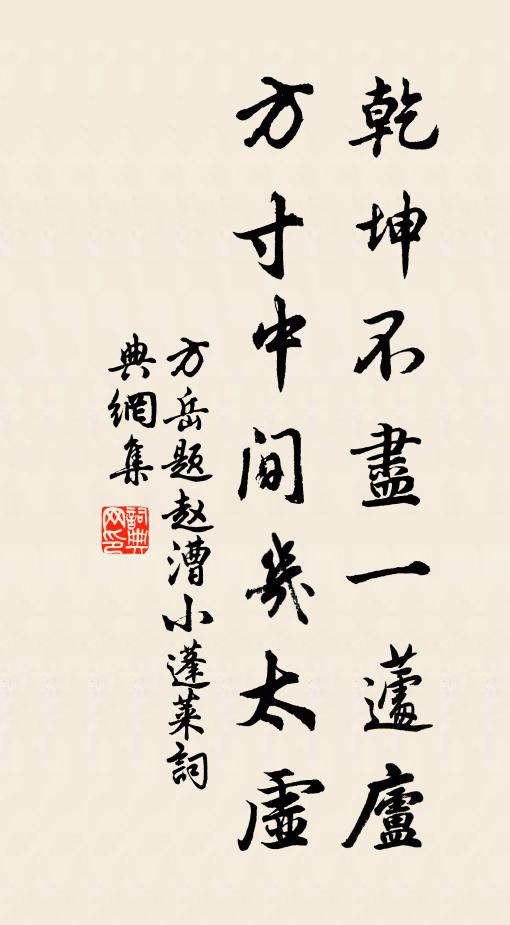 乾坤不盡一蘧廬
方寸中間幾太虛
方岳題赵漕小蓬萊詞
典網集
詞典
网印